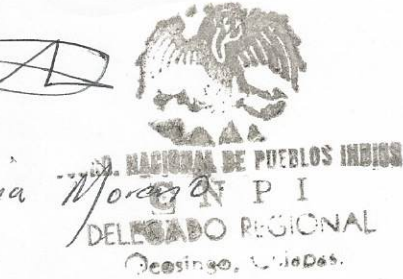 NACIONAL DE PUEBLOS INDIOS
ia Moreno
N P I
DELEGADO REGIONAL
Ocosingo, Chiapas.